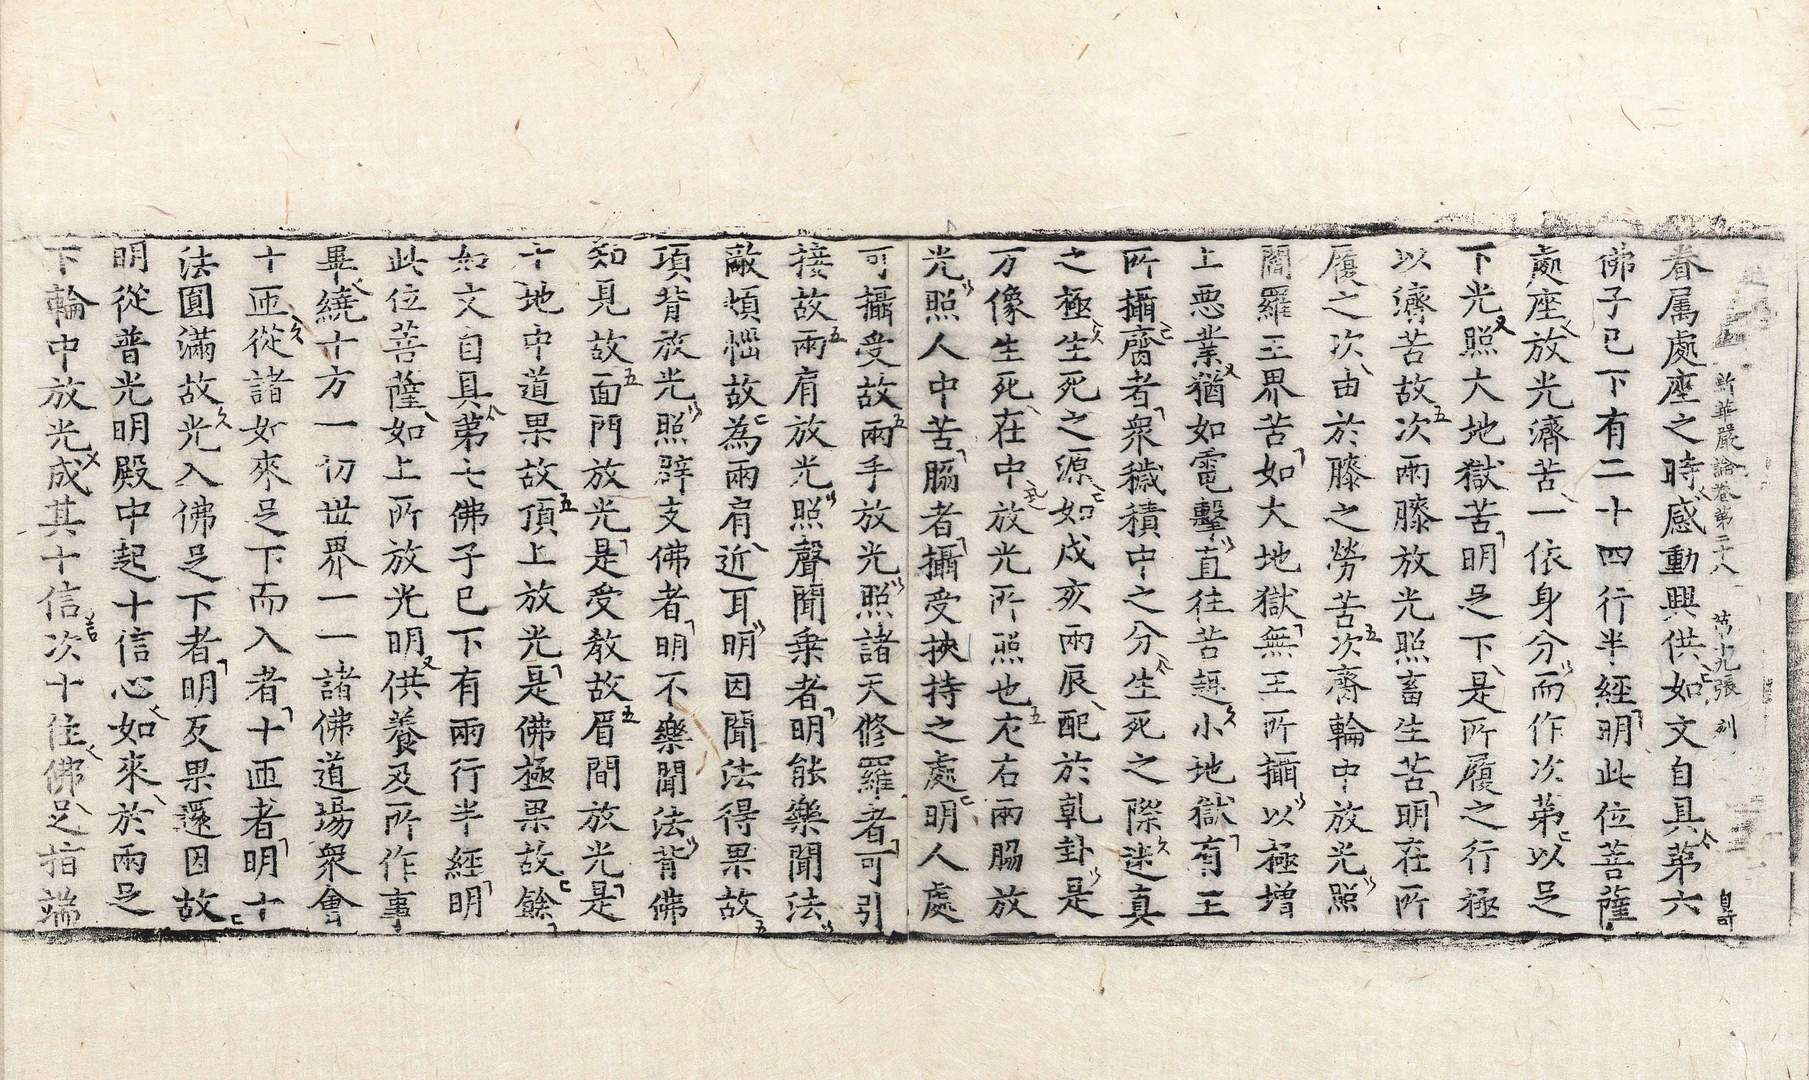 新華嚴論卷第二十八 第九張 刻
眷属處座之時感動興供如文自具第六
佛子已下有二十四行半經明此位菩薩
處座放光濟苦一依身分而作次第以足
下光照大地獄苦明足下是所履之行極
以濟苦故次兩膝放光照畜生苦明在所
履之次由於膝之勞苦次齊輪中放光照
閻羅王界苦如大地獄無王所攝以極增
上惡業猶如電擊直往苦趣小地獄有王
所攝齊者衆穢積中之分生死之際迷真
之極生死之源如戌亥兩辰配於乹卦是
万像生死在中放光所照也左右兩脇放
光照人中苦脇者攝受挾持之處明人處
可攝受故兩手放光照諸天修羅者可引
接故兩肩放光照聲聞乗者明能樂聞法
敵煩惱故為兩肩近耳明因聞法得果故
項背放光照辟支佛者明不樂聞法背佛
知見故面門放光是受教故眉間放光是
十地中道果故頂上放光是佛極果故餘
如文自具第七佛子已下有兩行半經明
此位菩薩如上所放光明供養及所作事
畢繞十方一切世界一一諸佛道場衆會
十匝從諸如來足下而入者十匝者明十
法圓滿故光入佛足下者明反果還因故
明從普光明殿中起十信心如來於兩足
下輪中放光成其十信次十住佛足指端